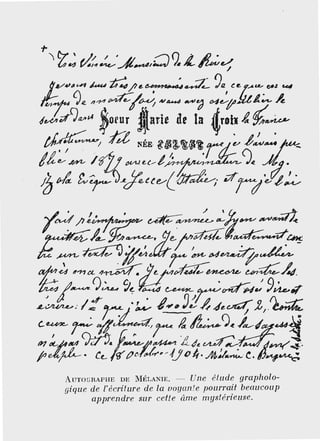 +
Très Vénéré Monsieur de la Rive,
Je vous suis très reconnaissante de ce que en ces
temps de morte foy, vous avez osé publier le
Secret dans Sœur Marie de la Croix la France
Chrétienne, tel NÉE que je l'avais pu-
blié en 1879 avec l'imprimatur de Mgr.
Zola Évêque de Lecce (Italie), et que j'ai
fait réimprimer cette année à Lyon avant de
quitter la France. Je proteste hautement con-
tre un texte différent qu'on oserait publier
après ma mort. Je proteste encore contre les
très faux dires de tous ceux qui ont osé dire et
écrire : 1º que j'ai brodé le Secret, 2º contre
ceux qui affirment, que la Reine de la Sagesse
n'a pas dit de faire passer le Secret à tout son
peuple. Ce 18 octobre 1904. Mélanie C. Bergère
AUTOGRAPHE DE MÉLANIE. — Une étude grapholo-
gique de l'écriture de la voyante pourrait beaucoup
apprendre sur cette âme mystérieuse.